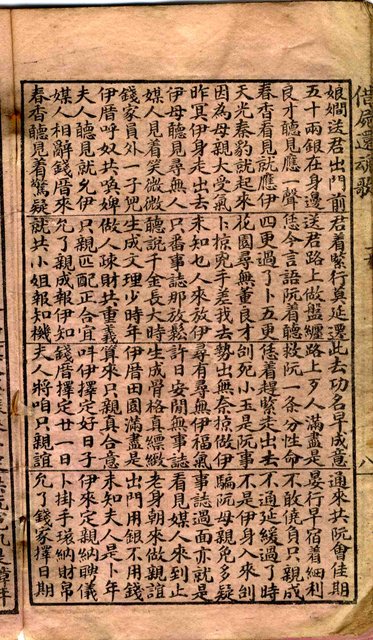 借屍還魂歌
八
娘嫺送君出門前 君着緊行莫延遷 此去功名早成意 通來共阮會佳期
五十兩銀在身邊 送君路上做盤纏 路上歹人滿盡是 晏行早宿着細利
良才聽見應一聲 恁今言語阮着聽 救阮一條分性命 不敢僥負只親成
春香看見就應伊 四更過了卜五更 恁着趕緊走出去 不通延緩過了時
天光秦豹就起來 花園尋無董良才 刣死小玉是阮事 不是伊身入來刣
因為母親大受氣 卜掠兇手差我去 勢出無奈掠做伊 騙阮母親免多疑
昨冥伊身走出去 未知乜人來放伊 尋有尋無伊福氣 事誌過面亦就是
伊母聽見尋無人 只番事誌那放鬆 許日安閒無事誌 看見媒人來到止
媒人見着笑微微 聽說千金長大時 生成骨格真縹緻 老身朝來做親誼
錢家員外一子兒 生成文理少時年 伊厝田園滿盡是 出門用銀不用錢
伊厝呼奴共喚婢 做人疎財共重義 算來只親真合意 未知夫人是卜年
夫人聽見就允伊 只親匹配正合宜 叫伊擇定好日子 伊來定親納聘儀
媒人相辭錢厝來 允了親成報伊知 錢厝擇定廿一日 卜掛手環納財帛
春香聽見着驚疑 就共小姐報知機 夫人將咱只親誼 允了錢家擇日期